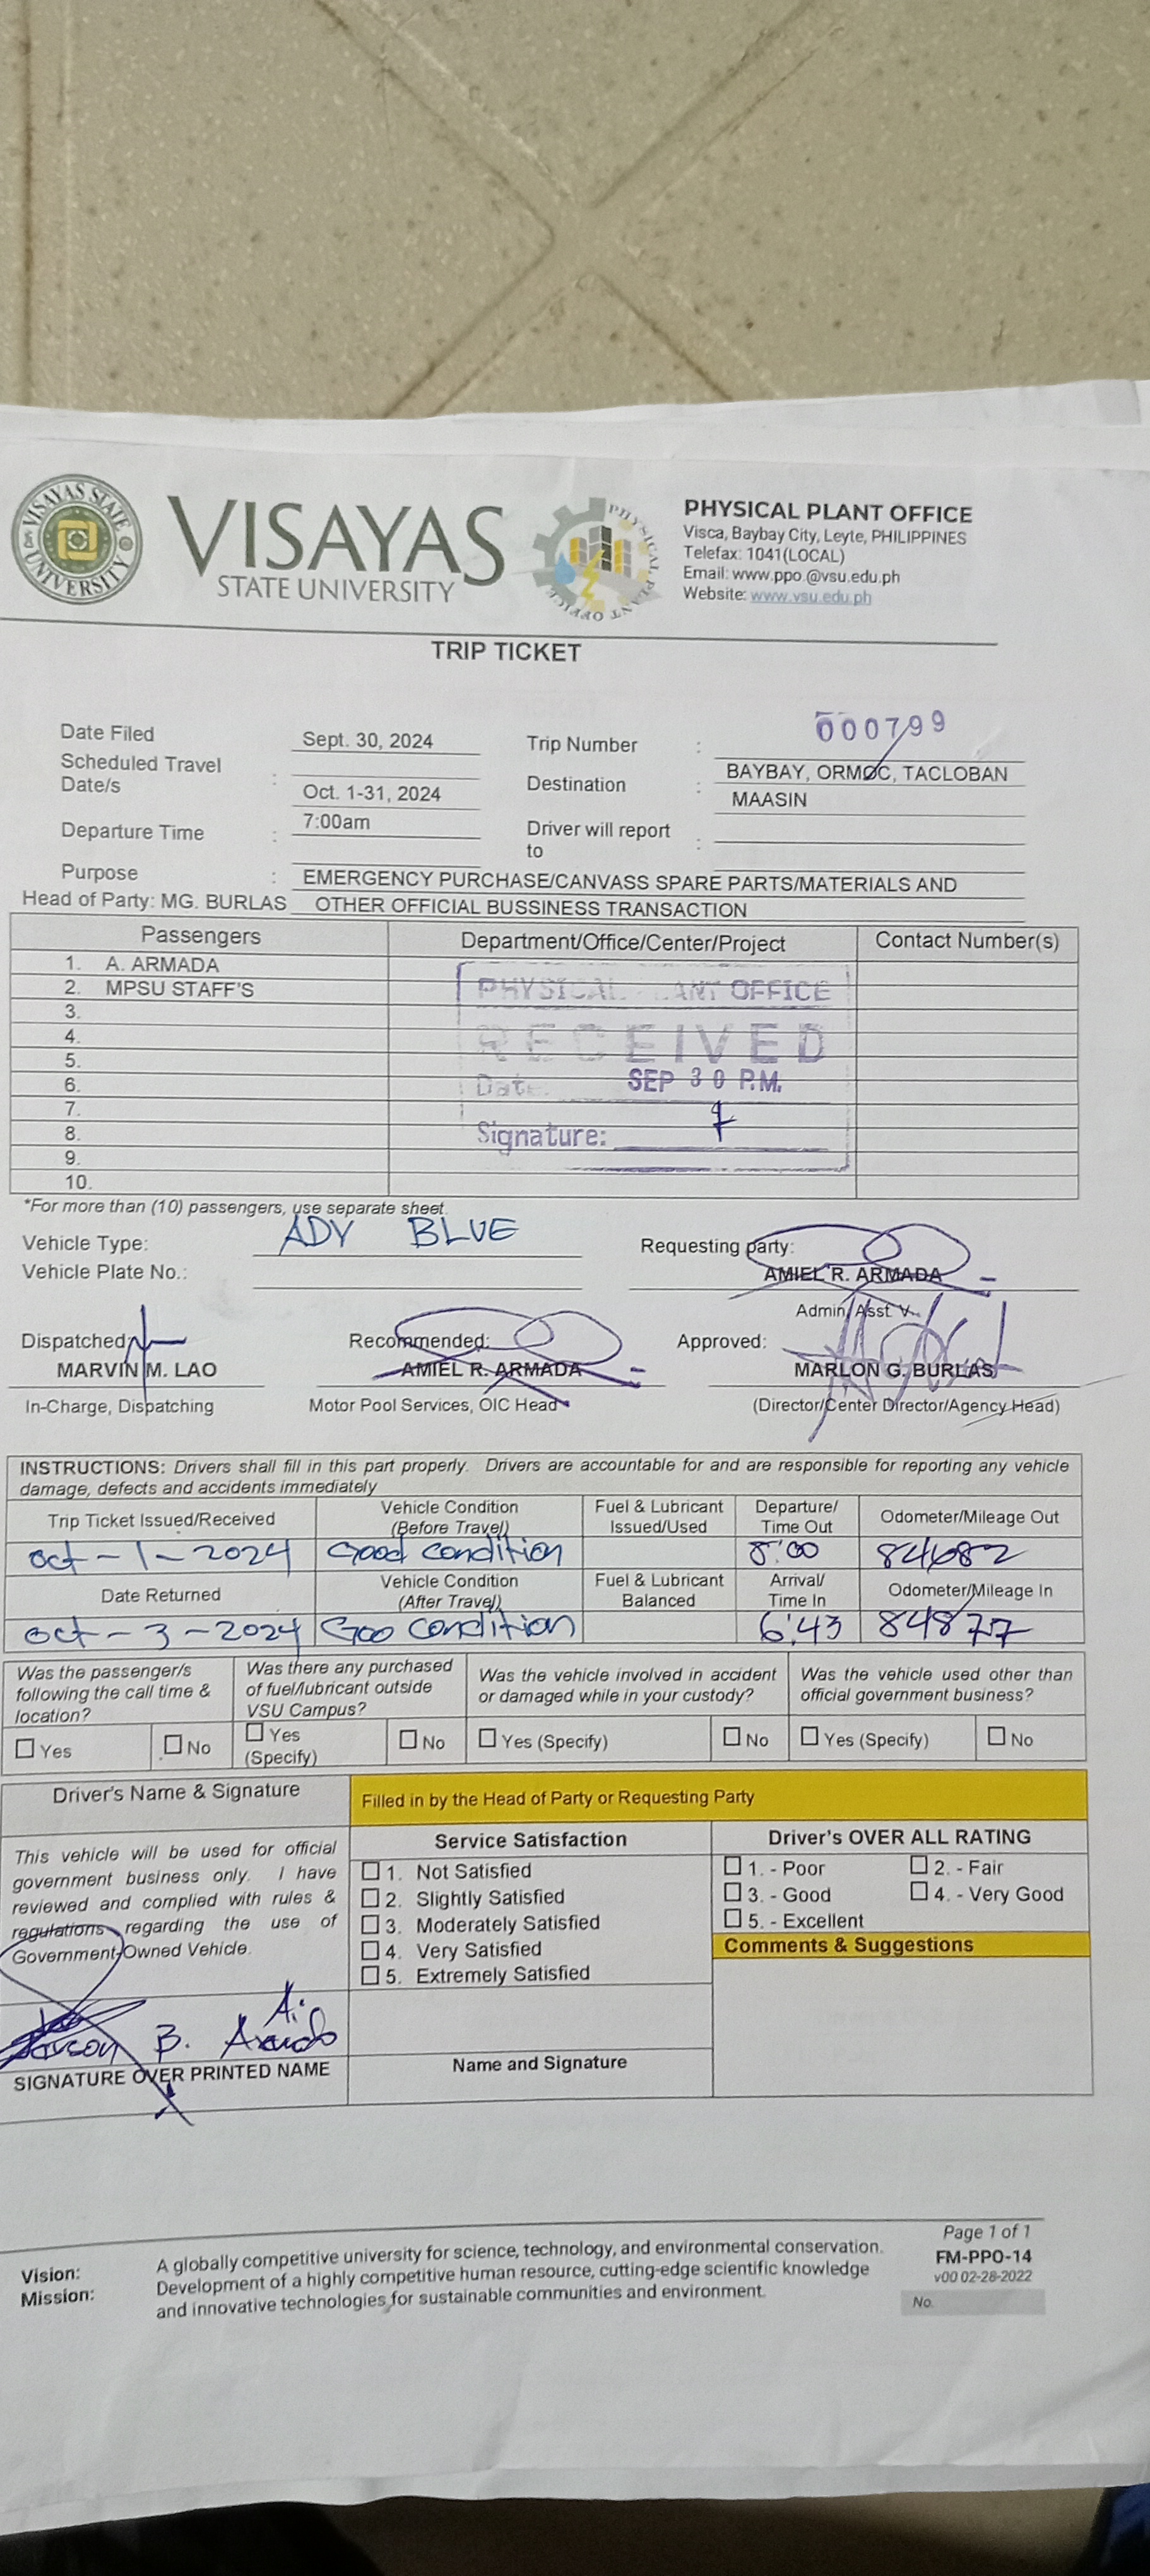 VISAYAS
STATE UNIVERSITY
VISAYAS STATE UNIVERSITY
PHYSICAL PLANT OFFICE
PHYSICAL PLANT OFFICE
Visca, Baybay City, Leyte, PHILIPPINES
Telefax: 1041(LOCAL)
Email: www.ppo.@vsu.edu.ph
Website: www.vsu.edu.ph
TRIP TICKET
Date Filed Sept. 30, 2024 Trip Number : 000799
Scheduled Travel Date/s : Oct. 1-31, 2024 Destination : BAYBAY, ORMOC, TACLOBAN
MAASIN
Departure Time : 7:00am Driver will report to :
Purpose : EMERGENCY PURCHASE/CANVASS SPARE PARTS/MATERIALS AND
Head of Party: MG. BURLAS OTHER OFFICIAL BUSSINESS TRANSACTION
Passengers Department/Office/Center/Project Contact Number(s)
1. A. ARMADA
2. MPSU STAFF'S
3.
4.
5.
6.
7.
8.
9.
10.
PHYSICAL PLANT OFFICE
RECEIVED
Date SEP 30 P.M.
Signature:
*For more than (10) passengers, use separate sheet.
Vehicle Type: ADY BLUE Requesting party:
Vehicle Plate No.: AMIEL R. ARMADA
Admin. Asst. V
Dispatched: Recommended: Approved:
MARVIN M. LAO AMIEL R. ARMADA MARLON G. BURLAS
In-Charge, Dispatching Motor Pool Services, OIC Head (Director/Center Director/Agency Head)
INSTRUCTIONS: Drivers shall fill in this part properly. Drivers are accountable for and are responsible for reporting any vehicle
damage, defects and accidents immediately
Trip Ticket Issued/Received Vehicle Condition (Before Travel) Fuel & Lubricant Issued/Used Departure/ Time Out Odometer/Mileage Out
Oct - 1 - 2024 Good condition 8:00 84682
Date Returned Vehicle Condition (After Travel) Fuel & Lubricant Balanced Arrival/ Time In Odometer/Mileage In
Oct - 3 - 2024 Goo condition 6:43 84877
Was the passenger/s following the call time & location?
Was there any purchased of fuel/lubricant outside VSU Campus?
Was the vehicle involved in accident or damaged while in your custody?
Was the vehicle used other than official government business?
Yes No Yes (Specify) No Yes (Specify) No Yes (Specify) No
Driver's Name & Signature
Filled in by the Head of Party or Requesting Party
This vehicle will be used for official
government business only. I have
reviewed and complied with rules &
regulations regarding the use of
Government-Owned Vehicle.
B.
SIGNATURE OVER PRINTED NAME
Service Satisfaction
1. Not Satisfied
2. Slightly Satisfied
3. Moderately Satisfied
4. Very Satisfied
5. Extremely Satisfied
Name and Signature
Driver's OVER ALL RATING
1. - Poor 2. - Fair
3. - Good 4. - Very Good
5. - Excellent
Comments & Suggestions
Vision: A globally competitive university for science, technology, and environmental conservation.
Mission: Development of a highly competitive human resource, cutting-edge scientific knowledge
and innovative technologies for sustainable communities and environment.
Page 1 of 1
FM-PPO-14
v00 02-28-2022
No.